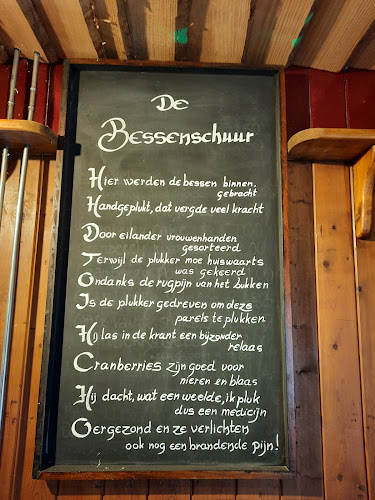 De
Bessenschuur
Hier werden de bessen binnen,
gebracht
Handgeplukt, dat vergde veel kracht
Door eilander vrouwenhanden
gesorteerd
Terwijl de plukker moe huiswaarts
was gekeerd
Ondanks de rugpijn van het bukken
Is de plukker gedreven om deze
parels te plukken
Hij las in de krant een bijzonder
relaas
Cranberries zijn goed voor
nieren en blaas
Hij dacht, wat een weelde, ik pluk
dus een medicijn
Oergezond en ze verlichten
ook nog een brandende pijn!